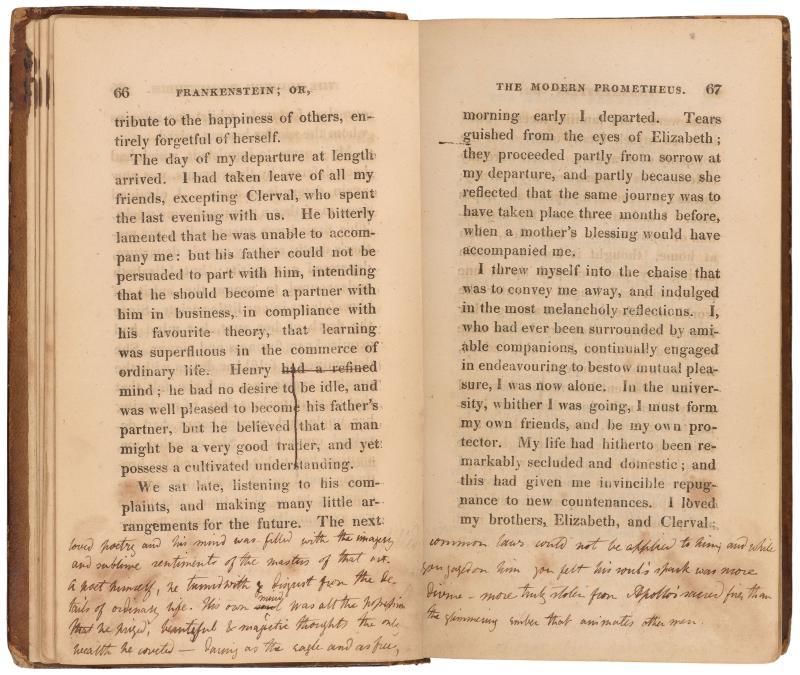 66 FRANKENSTEIN; OR,
tribute to the happiness of others, en-
tirely forgetful of herself.
The day of my departure at length
arrived. I had taken leave of all my
friends, excepting Clerval, who spent
the last evening with us. He bitterly
lamented that he was unable to accom-
pany me: but his father could not be
persuaded to part with him, intending
that he should become a partner with
him in business, in compliance with
his favourite theory, that learning
was superfluous in the commerce of
ordinary life. Henry had a refined
mind; he had no desire to be idle, and
was well pleased to become his father's
partner, but he believed that a man
might be a very good trader, and yet
possess a cultivated understanding.
We sat late, listening to his com-
plaints, and making many little ar-
rangements for the future. The next
loved poetry and his mind was filled with the imagery
and sublime sentiments of the masters of that art.
A poet himself, he turned with disgust from the de-
tails of ordinary life. His own soul mind was all the possession
that he prized, beautiful & magnetic thoughts the only
wealth he coveted — daring as the eagle and as free,
THE MODERN PROMETHEUS. 67
morning early I departed. Tears
guished from the eyes of Elizabeth;
they proceeded partly from sorrow at
my departure, and partly because she
reflected that the same journey was to
have taken place three months before,
when a mother's blessing would have
accompanied me.
I threw myself into the chaise that
was to convey me away, and indulged
in the most melancholy reflections. I,
who had ever been surrounded by ami-
able companions, continually engaged
in endeavouring to bestow mutual plea-
sure, I was now alone. In the univer-
sity, whither I was going, I must form
my own friends, and be my own pro-
tector. My life had hitherto been re-
markably secluded and domestic; and
this had given me invincible repug-
nance to new countenances. I loved
my brothers, Elizabeth, and Clerval;
common laws could not be applied to him; and while
you gazed on him you felt his soul's spark was more
divine — more truly stolen from Apollo's sacred fire, than
the glimmering ember that animates other men.